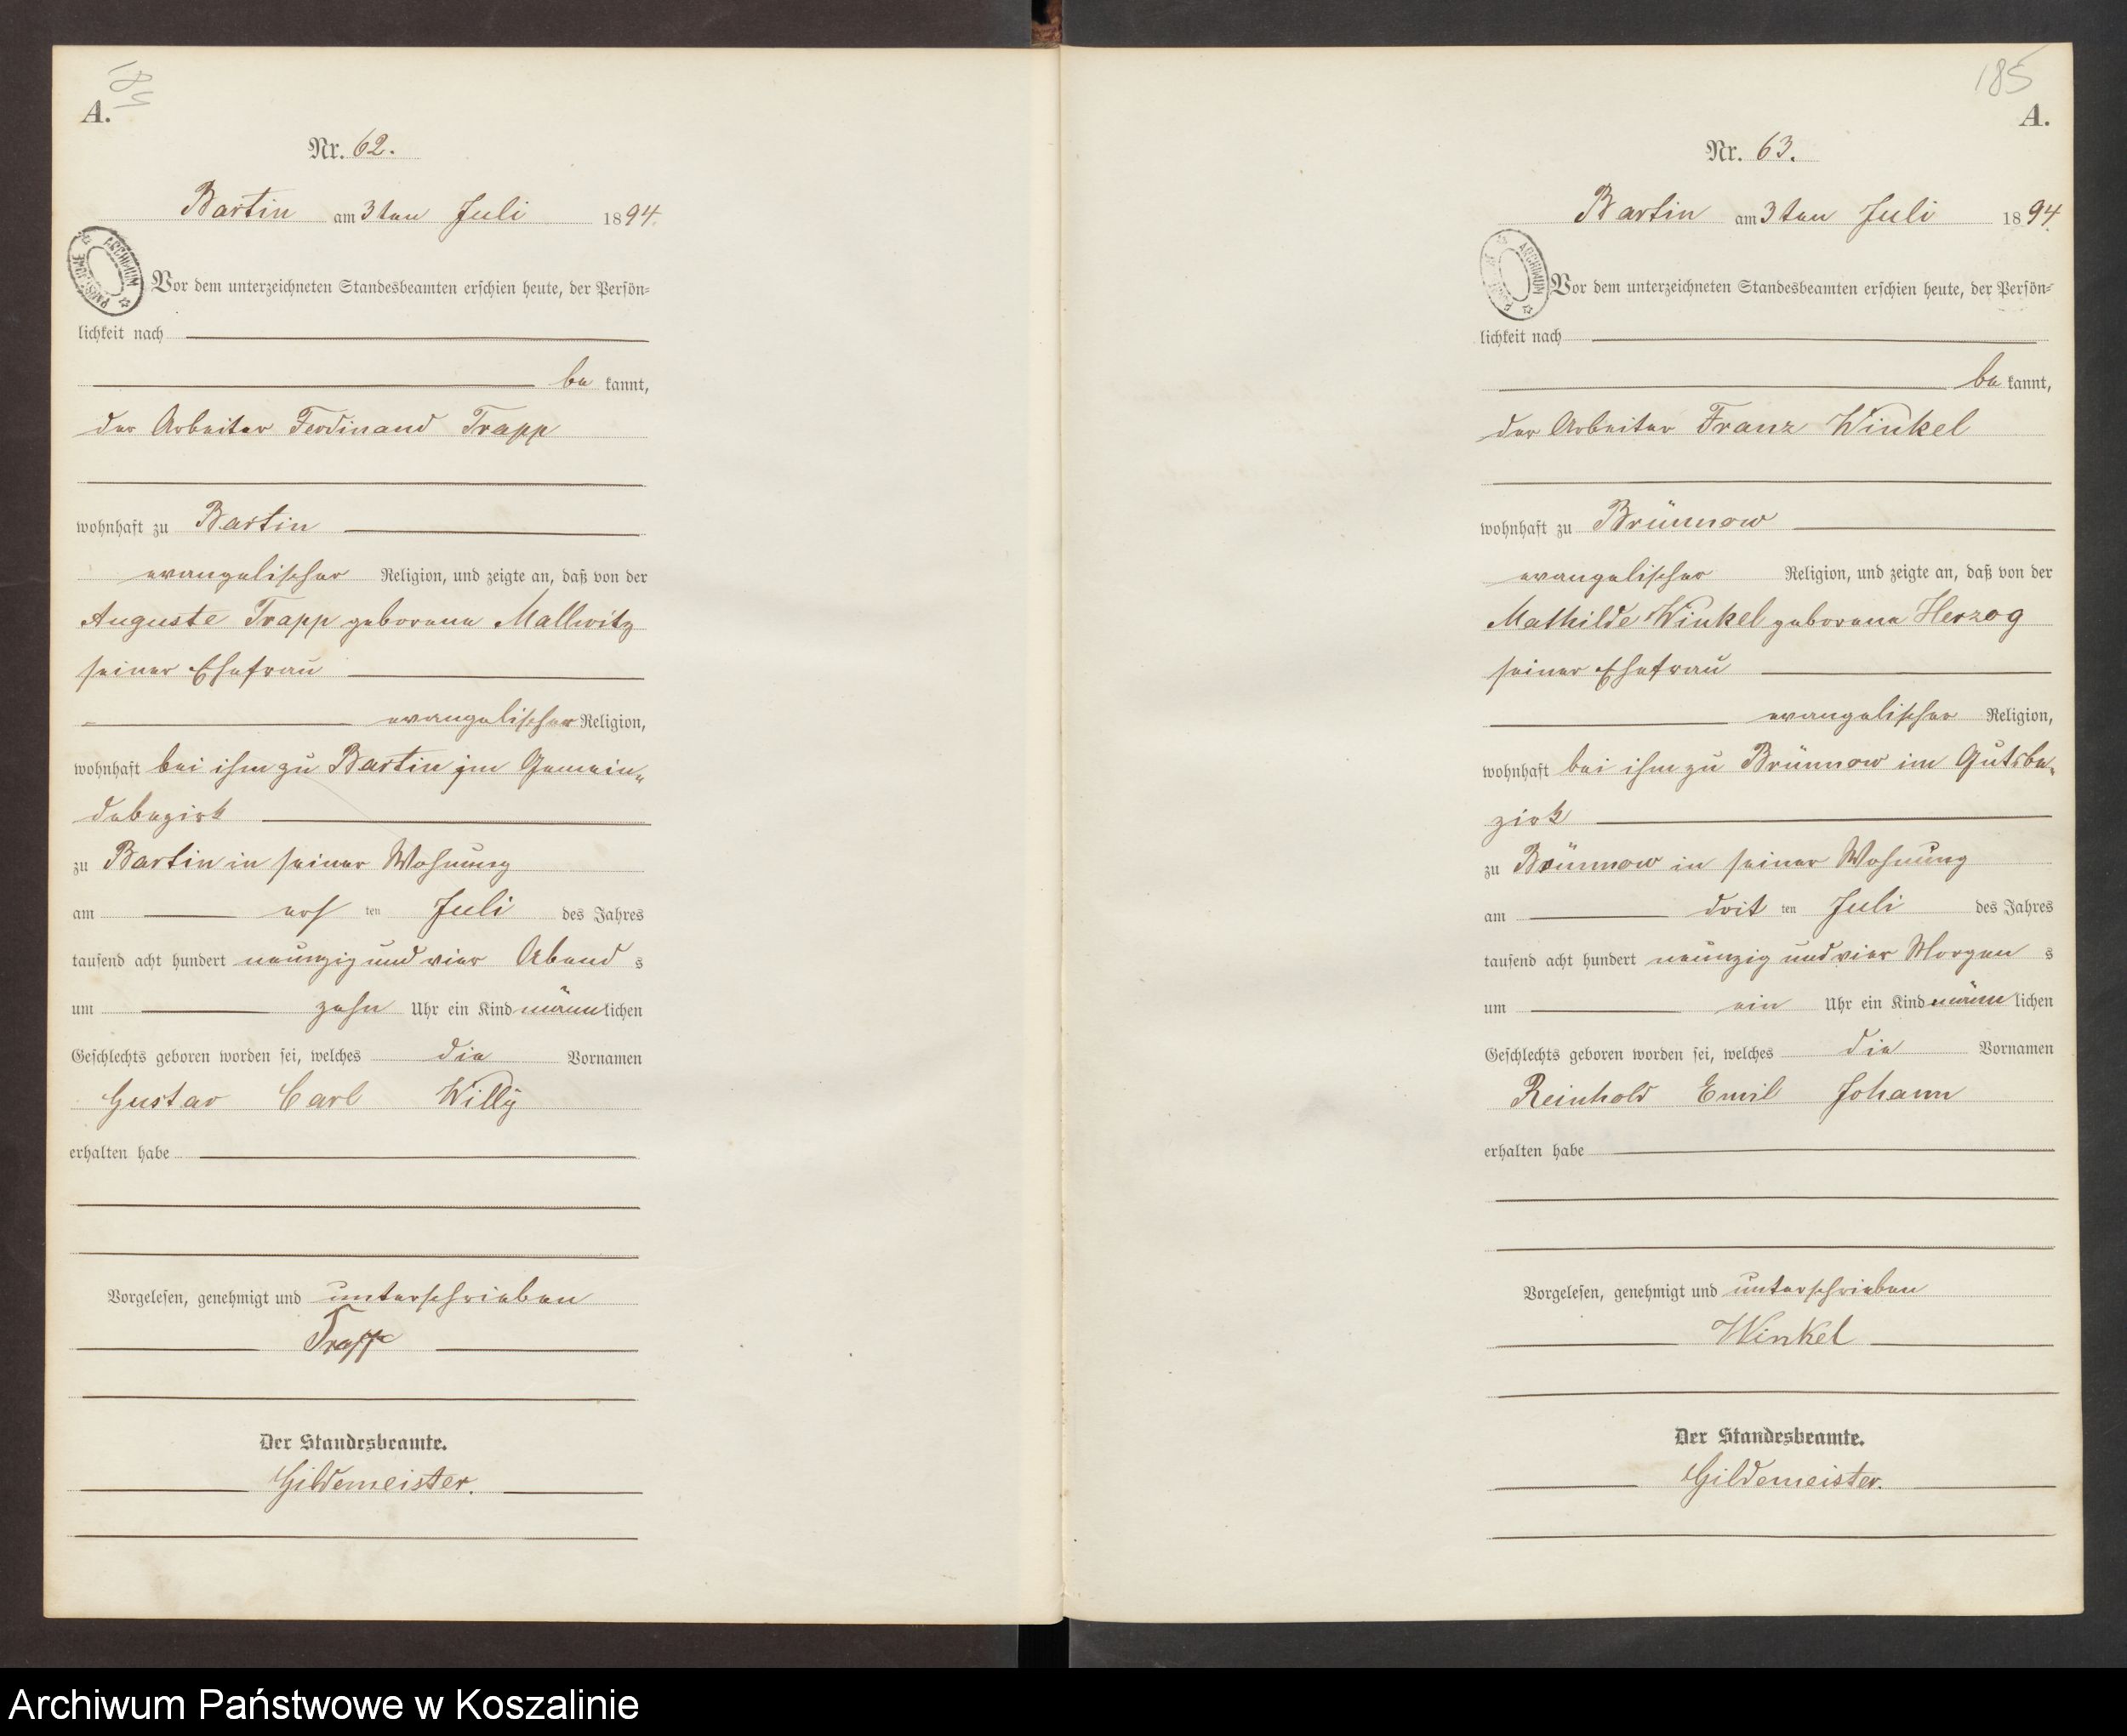 184
A.
Nr. 62.
Bartin am 3ten Juli 1894.
ARCHIWUM PAŃSTWOWE
Vor dem unterzeichneten Standesbeamten erschien heute, der Persön=
lichkeit nach
be kannt,
der Arbeiter Ferdinand Trapp
wohnhaft zu Bartin
evangelischer Religion, und zeigte an, daß von der
Auguste Trapp geborene Mallwitz
seiner Ehefrau
evangelischer Religion,
wohnhaft bei ihm zu Bartin im Gemein=
debezirk
zu Bartin in seiner Wohnung
am ers ten Juli des Jahres
tausend acht hundert neunzig und vier Abend s
um zehn Uhr ein Kind männ lichen
Geschlechts geboren worden sei, welches die Vornamen
Gustav Carl Willy
erhalten habe
Vorgelesen, genehmigt und unterschrieben
Trapp
Der Standesbeamte.
Gildemeister.
185
A.
Nr. 63.
Bartin am 3ten Juli 1894.
ARCHIWUM
Vor dem unterzeichneten Standesbeamten erschien heute, der Persön=
lichkeit nach
be kannt,
der Arbeiter Franz Winkel
wohnhaft zu Brünnow
evangelischer Religion, und zeigte an, daß von der
Mathilde Winkel geborene Herzog
seiner Ehefrau
evangelischer Religion,
wohnhaft bei ihm zu Brünnow im Gutsbe=
zirk
zu Brünnow in seiner Wohnung
am drit ten Juli des Jahres
tausend acht hundert neunzig und vier Morgen s
um ein Uhr ein Kind männ lichen
Geschlechts geboren worden sei, welches die Vornamen
Reinhold Emil Johann
erhalten habe
Vorgelesen, genehmigt und unterschrieben
Winkel
Der Standesbeamte.
Gildemeister.
Archiwum Państwowe w Koszalinie